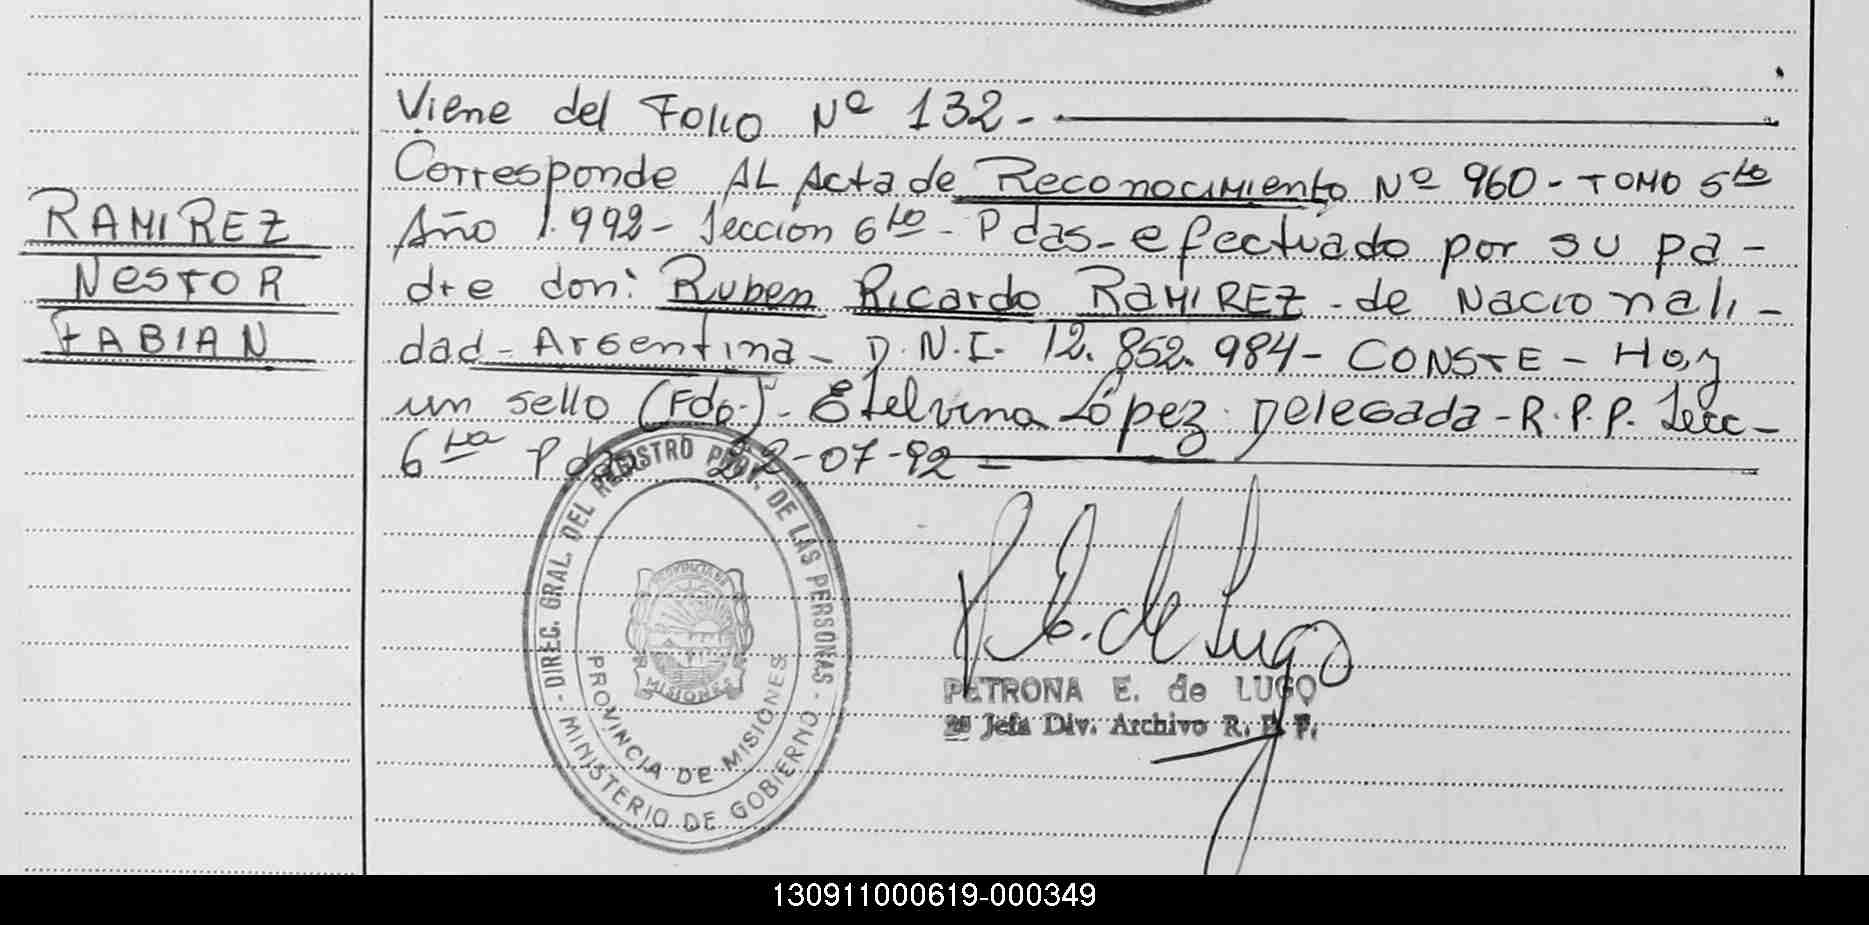 RAMIREZ
NESTOR
FABIAN
Viene del Folio Nº 132-
Corresponde AL Acta de Reconocimiento Nº 960 - TOMO 5to
Año 1.992 - Sección 6ta - Pdas - efectuado por su pa-
dre don: Ruben Ricardo RAMIREZ - de Nacionali-
dad - Argentina - D.N.I. 12.852.984 - CONSTE - Hay
un sello (Fdo.) - Etelvina López Delegada - R.P.P. Secc-
6ta Pdas 22-07-92 -
DIREC. GRAL. DEL REGISTRO PROV. DE LAS PERSONAS
MINISTERIO DE GOBIERNO
PROVINCIA DE MISIONES
MISIONES
P. E. de Lugo
PETRONA E. de LUGO
2ª Jefa Div. Archivo R. P. P.
130911000619-000349